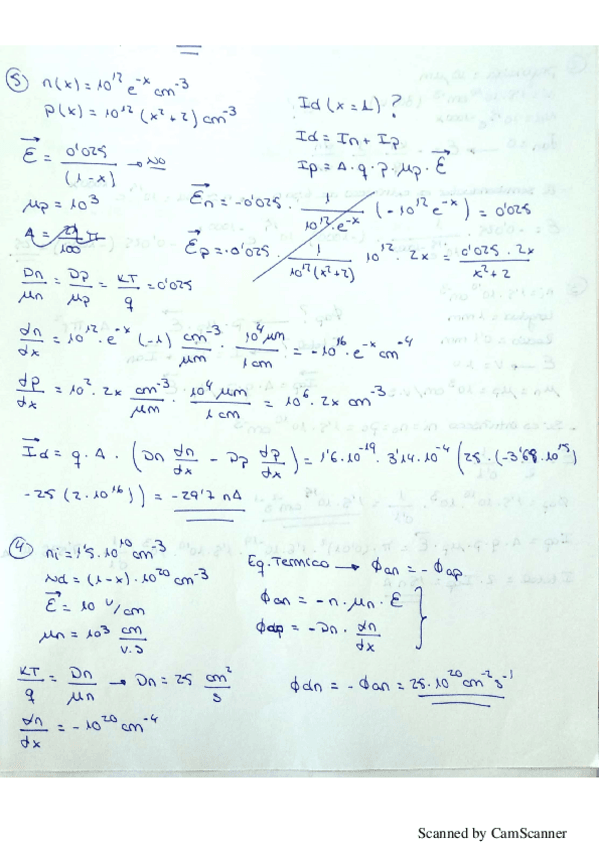 ⑤ n(x) = 10¹² e⁻ˣ cm⁻³
p(x) = 10¹² (x² + 2) cm⁻³
Id (x = 1) ?
Id = In + Ip
Ip = A · q · p · μp · E⃗
E⃗ = 0'025 / (1 - x) → NO
μp = 10³
E⃗n = - 0'025 · 1 / (10¹² · e⁻ˣ) (- 10¹² e⁻ˣ) = 0'025
E⃗p = - 0'025 · 1 / (10¹² (x² + 2)) 10¹² · 2x = 0'025 · 2x / (x² + 2)
Dn / μn = Dp / μp = KT / q = 0'025
dn / dx = 10¹² · e⁻ˣ (-1) cm⁻³ / μm · 10⁴ μm / 1 cm = - 10¹⁶ · e⁻ˣ cm⁻⁴
dp / dx = 10² · 2x cm⁻³ / μm · 10⁴ μm / 1 cm = 10⁶ · 2x cm⁻³
I⃗d = q · A · (Dn dn / dx - Dp dp / dx) = 1'6 · 10⁻¹⁹ · 3'14 · 10⁻⁴ (25 · (-3'68 · 10¹⁵)
- 25 (2 · 10¹⁶)) = - 29'7 nA
④ ni = 1'5 · 10¹⁰ cm⁻³
Nd = (1 - x) · 10²⁰ cm⁻³
E⃗ = 10 V/cm
μn = 10³ cm / V.s
Eq. Termico → Φan = - Φap
Φan = - n · μn · E
Φdp = - Dn · dn / dx
KT / q = Dn / μn → Dn = 25 cm² / s
Φdn = - Φan = 25 · 10²⁰ cm⁻² s⁻¹
dn / dx = - 10²⁰ cm⁻⁴
Scanned by CamScanner